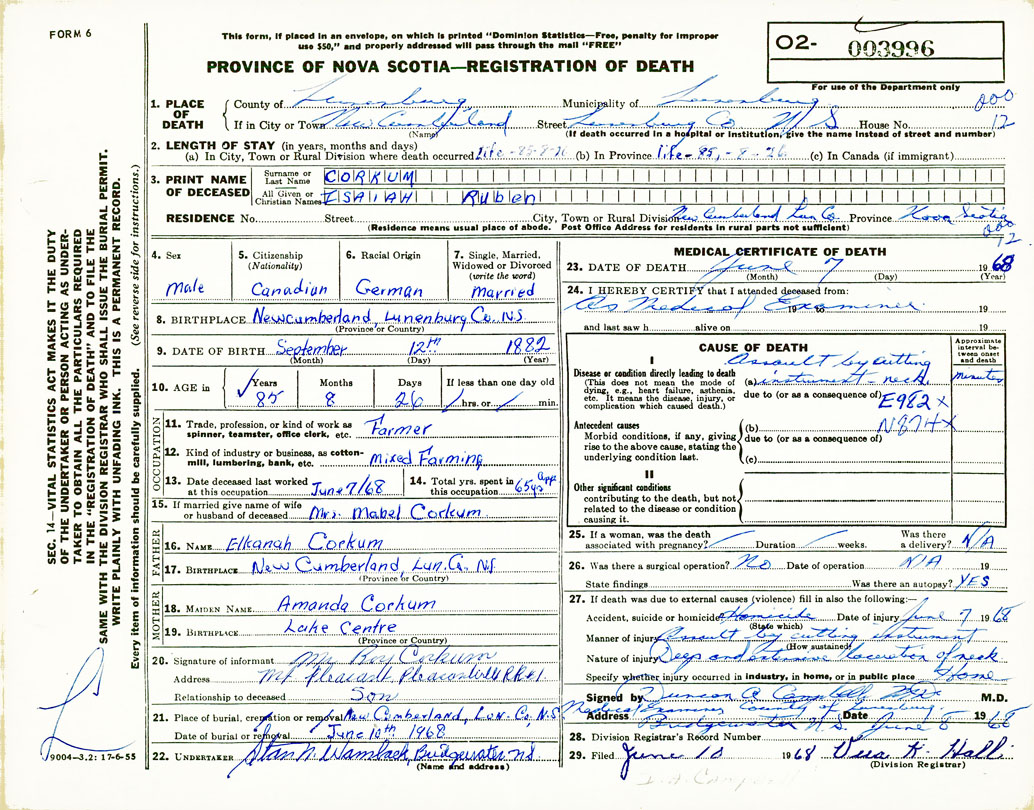 FORM 6
This form, if placed in an envelope, on which is printed "Dominion Statistics—Free, penalty for improper
use $50," and properly addressed will pass through the mail "FREE"
PROVINCE OF NOVA SCOTIA—REGISTRATION OF DEATH
O2- 003996
For use of the Department only
SEC. 14—VITAL STATISTICS ACT MAKES IT THE DUTY
OF THE UNDERTAKER OR PERSON ACTING AS UNDER-
TAKER TO OBTAIN ALL THE PARTICULARS REQUIRED
IN THE "REGISTRATION OF DEATH" AND TO FILE THE
SAME WITH THE DIVISION REGISTRAR WHO SHALL ISSUE THE BURIAL PERMIT.
WRITE PLAINLY WITH UNFADING INK. THIS IS A PERMANENT RECORD.
Every item of information should be carefully supplied. (See reverse side for instructions.)
1. PLACE OF DEATH
County of Lunenburg Municipality of Lunenburg 000
If in City or Town New Cumberland Street Lunenburg Co. N S House No. 12
(Name) (If death occurred in a hospital or institution, give the name instead of street and number)
2. LENGTH OF STAY (in years, months and days)
(a) In City, Town or Rural Division where death occurred life - 85-8-26 (b) In Province life - 85, - 8 - 26 (c) In Canada (if immigrant)
3. PRINT NAME OF DECEASED
Surname or Last Name CORKUM
All Given or Christian Names ISAIAH Ruben
RESIDENCE No. Street City, Town or Rural Division New Cumberland Lun Co. Province Nova Scotia
(Residence means usual place of abode. Post Office Address for residents in rural parts not sufficient)
000
12
4. Sex
Male
5. Citizenship
(Nationality)
Canadian
6. Racial Origin
German
7. Single, Married,
Widowed or Divorced
(write the word)
Married
8. BIRTHPLACE Newcumberland, Lunenburg Co. N.S
(Province or Country)
9. DATE OF BIRTH September 12th 1882
(Month) (Day) (Year)
10. AGE in Years Months Days If less than one day old
85 8 26 hrs. or min.
OCCUPATION
11. Trade, profession, or kind of work as
spinner, teamster, office clerk, etc. Farmer
12. Kind of industry or business, as cotton-
mill, lumbering, bank, etc. Mixed Farming
13. Date deceased last worked
at this occupation June 7/68
14. Total yrs. spent in
this occupation 65 yrs appx
15. If married give name of wife
or husband of deceased Mrs. Mabel Corkum
FATHER
16. NAME Elkanah Corkum
17. BIRTHPLACE New Cumberland, Lun. Co. N.S
(Province or Country)
MOTHER
18. MAIDEN NAME Amanda Corkum
19. BIRTHPLACE Lake Centre
(Province or Country)
20. Signature of informant Mr Roy Corkum
Address Mt Pleasant, Pleasantville RR#1
Relationship to deceased Son
21. Place of burial, cremation or removal New Cumberland, Lun. Co. N.S
Date of burial or removal June 10th 1968
22. UNDERTAKER Stan N. Wamback, Bridgewater NS
(Name and address)
9004—3.2: 17-6-55
MEDICAL CERTIFICATE OF DEATH
23. DATE OF DEATH June 7 1968
(Month) (Day) (Year)
24. I HEREBY CERTIFY that I attended deceased from:
As Medical Examiner 19 to 19
and last saw h alive on 19
CAUSE OF DEATH
Approximate interval between onset and death
I
Disease or condition directly leading to death
(This does not mean the mode of
dying, e.g., heart failure, asthenia,
etc. It means the disease, injury, or
complication which caused death.)
Assault by cutting
(a) instrument - neck minutes
due to (or as a consequence of)
E982 X
N874X
Antecedent causes
Morbid conditions, if any, giving
rise to the above cause, stating the
underlying condition last.
(b)
due to (or as a consequence of)
(c)
II
Other significant conditions
contributing to the death, but not
related to the disease or condition
causing it.
25. If a woman, was the death
associated with pregnancy? Duration weeks. Was there
a delivery? N/A
26. Was there a surgical operation? No Date of operation N/A 19
State findings Was there an autopsy? YES
27. If death was due to external causes (violence) fill in also the following:—
Accident, suicide or homicide Homicide Date of injury June 7 1968
(State which)
Manner of injury Assault by cutting instrument
(How sustained)
Nature of injury Deep and extensive laceration of neck
Specify whether injury occurred in industry, in home, or in public place Home
Signed by Duncan A Campbell M.D.
Medical Examiner County of Lunenburg
Address Bridgewater N.S. Date June 8 1968
28. Division Registrar's Record Number
29. Filed June 10 1968
(Division Registrar)